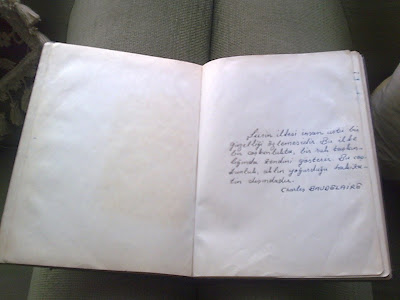 Şiirin ilkesi insanın üstün bir
güzelliği özlemesidir. Bu ilke
bir coşkunlukta, bir ruh taşkın-
lığında kendini gösterir. Bu coş-
kunluk, aklın yoğurduğu hakika-
tin dışındadır.
Charles BAUDELAIRE